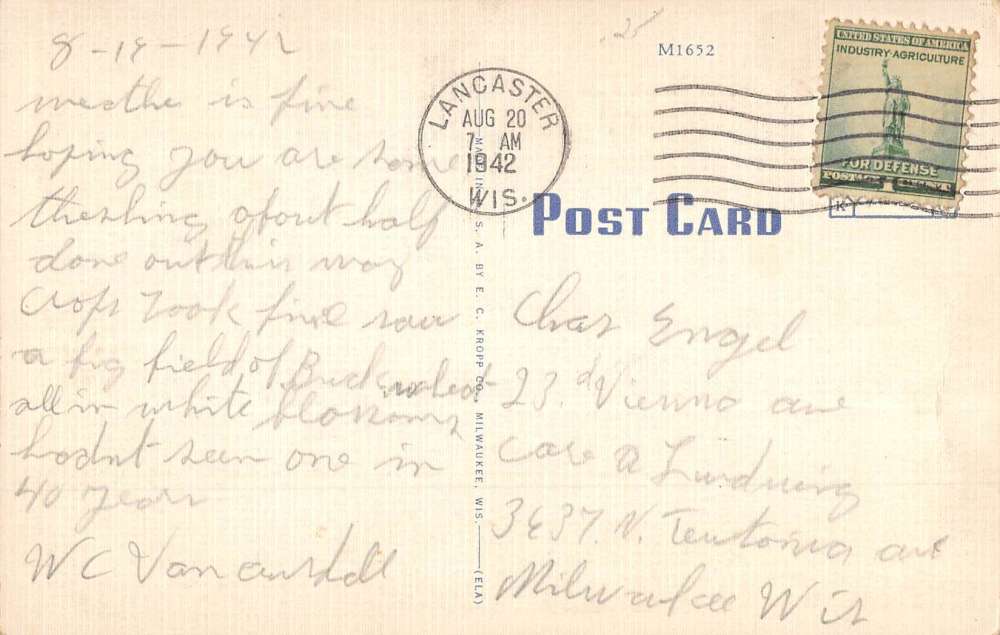 8-19-1942
weathe is fine
hoping you are some
threshing about half
done out this way
Crops look fine saw
a big field of Buckwheat
all in white blossoms
hadnt seen one in
40 years
W C Van
M1652
LANCASTER
AUG 20
7 AM
1942
WIS.
UNITED STATES OF AMERICA
INDUSTRY-AGRICULTURE
FOR DEFENSE
POSTAGE 1
POST CARD
K
MADE IN U. S. A. BY E. C. KROPP CO., MILWAUKEE, WIS. (ELA)
Chas Engel
23. d Vienna ave
Care A
3637. N. Teutonia ave
Milwaukee Wis